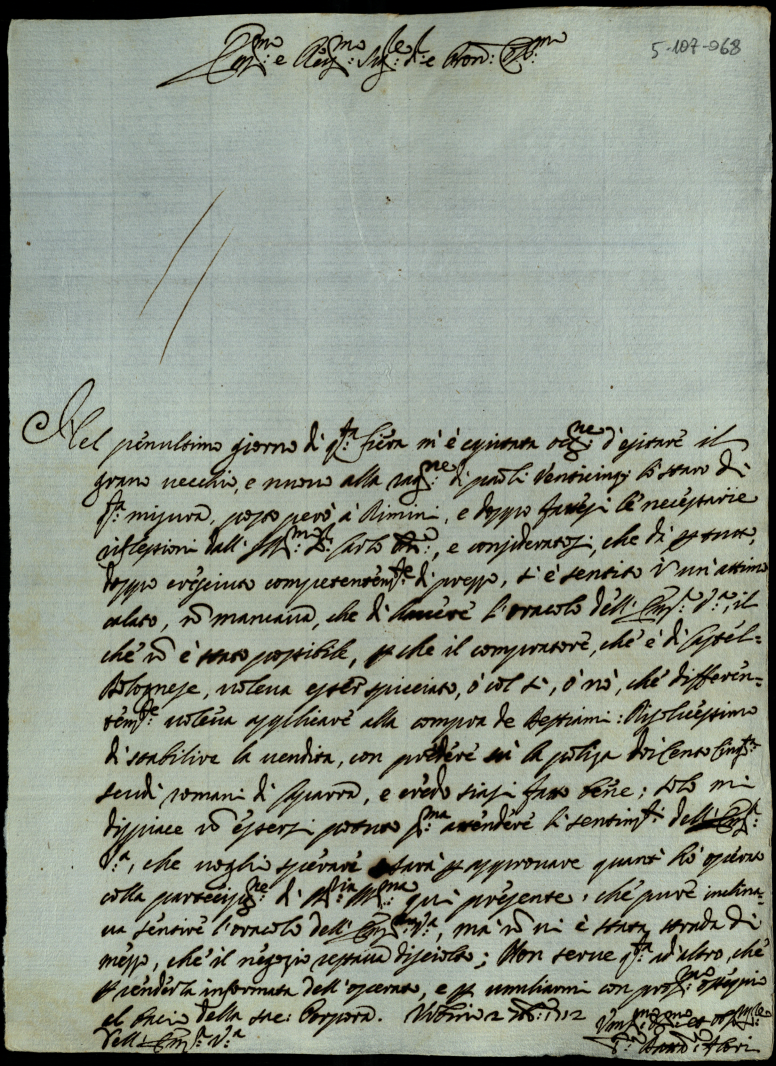 Em.mo e Rev.mo Sig.re e Pron: Col.mo
5-107-068
Nel penultimo giorno di q.ta fiera m'è capitata occ.ne d'esitare il
grano vecchio, e nuovo alla rag.ne di paoli venticinq; lo staro di
q.ta misura, posto però à Rimini, e doppo fattesi le necessarie
riflessioni dall' Ill.mo D. Carlo, e consideratosi, che da per tutto,
doppo cresciuto competentem.te di prezzo, si è sentito in un'attimo
calato, non mancava, che di havere l'oracolo dell' Em.za V.a, il
che non è stato possibile, per che il compratore, che è di Castel-
Bolognese, voleva esser spicciato, ò col sì, ò nò, che differen-
tem.te voleva applicare alla compra de Bestiami: Risolvessimo
di stabilire la vendita, con prendere sù la poliza doi Cento Cinq.ta
scudi romani di Caparra, e credo siasi fatto bene; solo mi
dispiace non essersi potuto p.ma attendere li sentim.ti dell' Em.za
V.a, che voglio sperare sarà per approvare quant' hò operato
colla partecip.ne di qui presente, che pure inclina-
va sentire l'oracolo dell' Em.za V.a, mà non vi è stata strada di
mezzo, che il negozio restava disciolto; Non serve q.ta ad altro, che
per renderla informata dell'operato, e per umiliarmi con prof.mo ossequio
al bacio della sac: Porpora. 2 1712
Dell' Em.za V.a